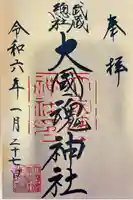 奉拝
武蔵
総社
大國魂神社
令和六年一月二十七日